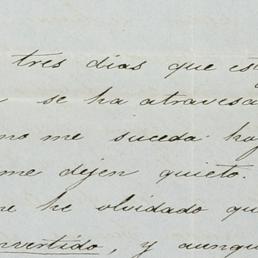 tres dias que es
se ha atravesa
no me suceda ho
me dejen quieto.
he olvidado qu
nvertido, y aunqu